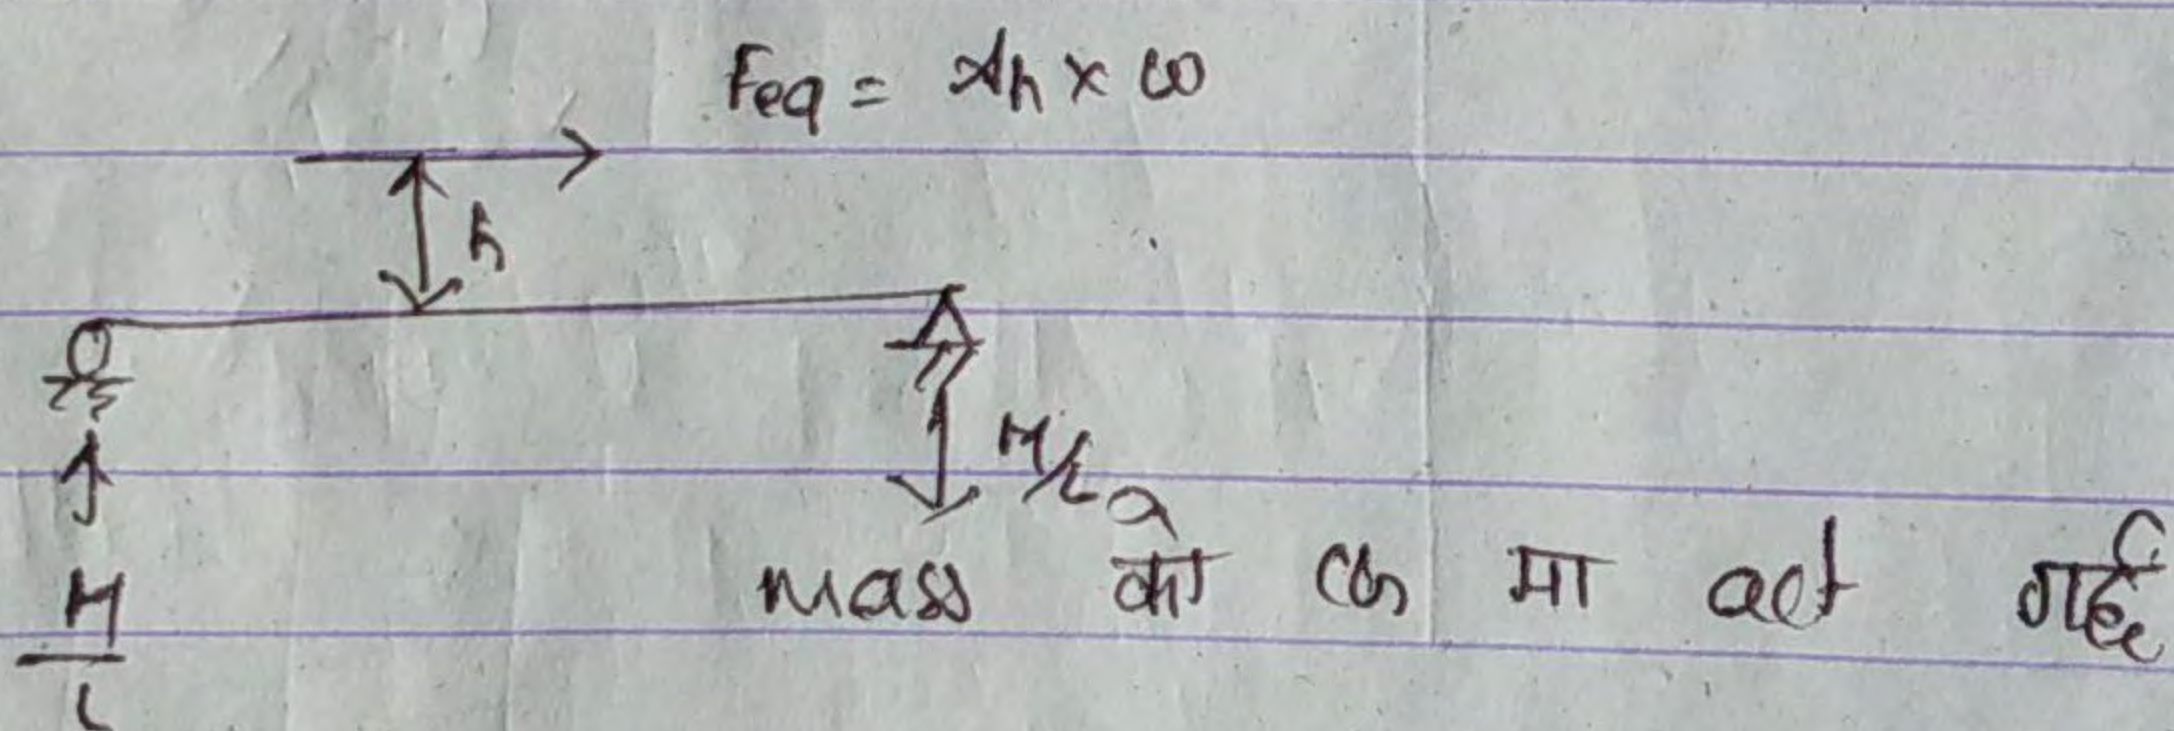 Feq = αh × ω
h
M/L
mass को CG मा act गर्छ
M
L